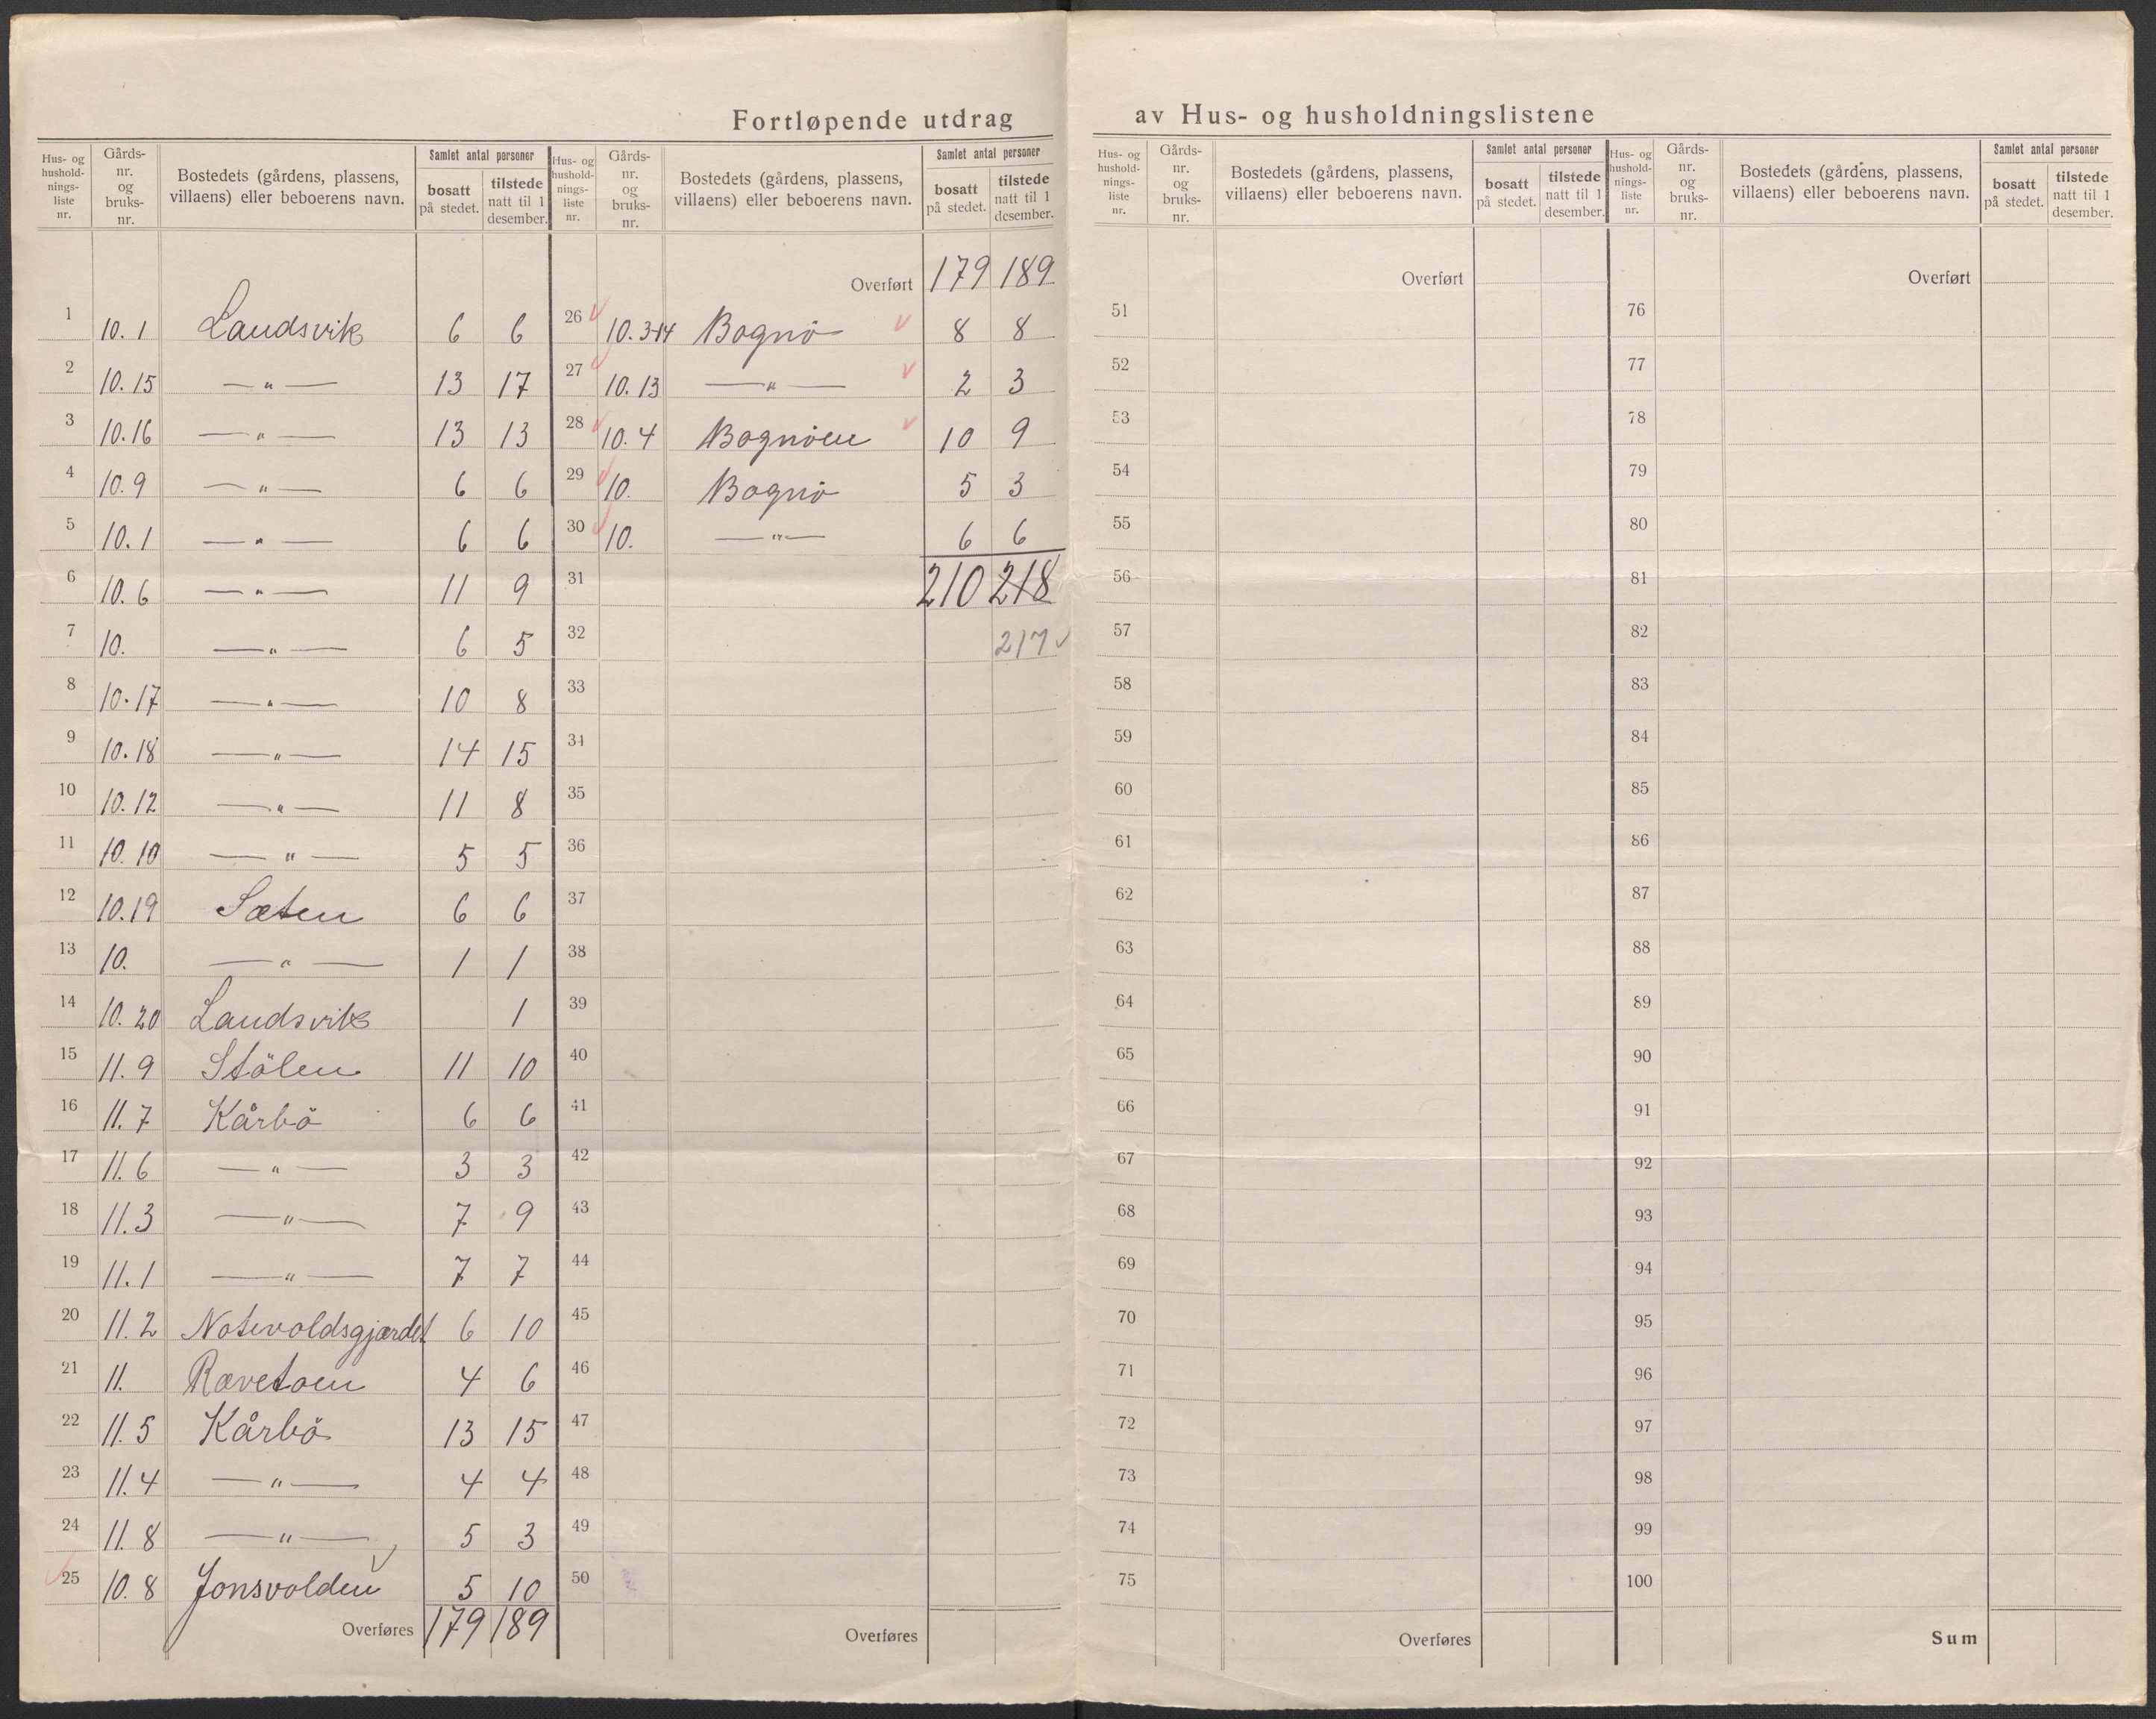 Fortløpende utdrag av Hus- og husholdningslistene
Hus- og hushold-nings-liste nr. Gårds-nr. og bruks-nr. Bostedets (gårdens, plassens, villaens) eller beboerens navn. Samlet antal personer bosatt på stedet. tilstede natt til 1 desember.
1 10.1 Landsvik 6 6
2 10.15 —"— 13 17
3 10.16 —"— 13 13
4 10.9 —"— 6 6
5 10.1 —"— 6 6
6 10.6 —"— 11 9
7 10. —"— 6 5
8 10.17 —"— 10 8
9 10.18 —"— 14 15
10 10.12 —"— 11 8
11 10.10 —"— 5 5
12 10.19 Sæten 6 6
13 10. —"— 1 1
14 10.20 Landsvik 1
15 11.9 Stölen 11 10
16 11.7 Kårbö 6 6
17 11.6 —"— 3 3
18 11.3 —"— 7 9
19 11.1 —"— 7 7
20 11.2 Notevoldsgjærdet 6 10
21 11. Rævetoen 4 6
22 11.5 Kårbö 13 15
23 11.4 —"— 4 4
24 11.8 —"— 5 3
25 10.8 Jonsvolden 5 10
Overføres 179 189
Hus- og hushold-nings-liste nr. Gårds-nr. og bruks-nr. Bostedets (gårdens, plassens, villaens) eller beboerens navn. Samlet antal personer bosatt på stedet. tilstede natt til 1 desember.
Overført 179 189
26 10.3+14 Bognö 8 8
27 10.13 —"— 2 3
28 10.4 Bognöen 10 9
29 10. Bognö 5 3
30 10. —"— 6 6
31 210 218
32 217
33
34
35
36
37
38
39
40
41
42
43
44
45
46
47
48
49
50
Overføres
Hus- og hushold-nings-liste nr. Gårds-nr. og bruks-nr. Bostedets (gårdens, plassens, villaens) eller beboerens navn. Samlet antal personer bosatt på stedet. tilstede natt til 1 desember.
Overført
51
52
53
54
55
56
57
58
59
60
61
62
63
64
65
66
67
68
69
70
71
72
73
74
75
Overføres
Hus- og hushold-nings-liste nr. Gårds-nr. og bruks-nr. Bostedets (gårdens, plassens, villaens) eller beboerens navn. Samlet antal personer bosatt på stedet. tilstede natt til 1 desember.
Overført
76
77
78
79
80
81
82
83
84
85
86
87
88
89
90
91
92
93
94
95
96
97
98
99
100
Sum